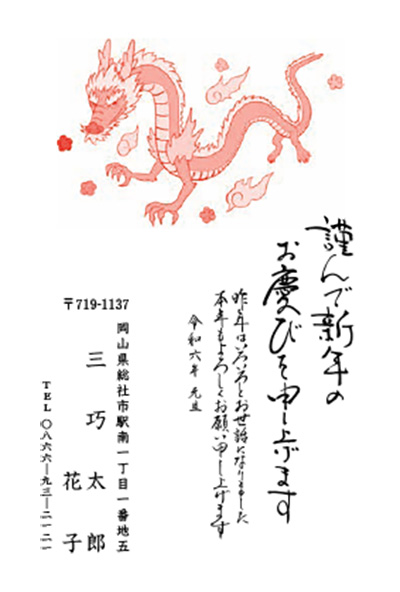 謹んで新年の
お慶びを申し上げます
昨年はいろいろとお世話になりました
本年もよろしくお願い申し上げます
令和六年 元旦
〒719-1137
岡山県総社市駅南一丁目一番地五
三巧太郎
花子
TEL〇八六六―九三―二一二一